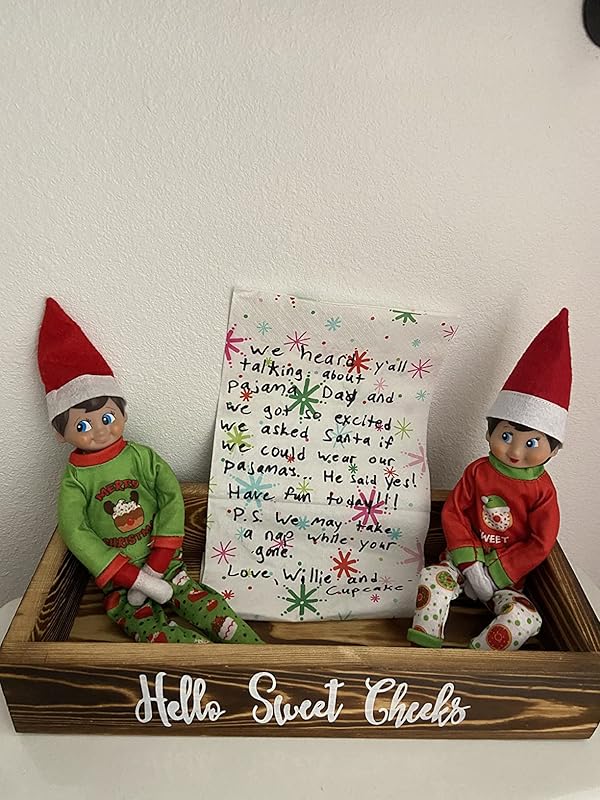 we heard y'all
talking about
pajama Day and
we got so excited
we asked Santa if
we could wear our
pajamas... He said yes!
Have fun today!!!
P.S. We may take
a nap while your
gone.
Love, Willie and
Cupcake
MERRY
CHRISTMAS
SWEET
Hello Sweet Cheeks